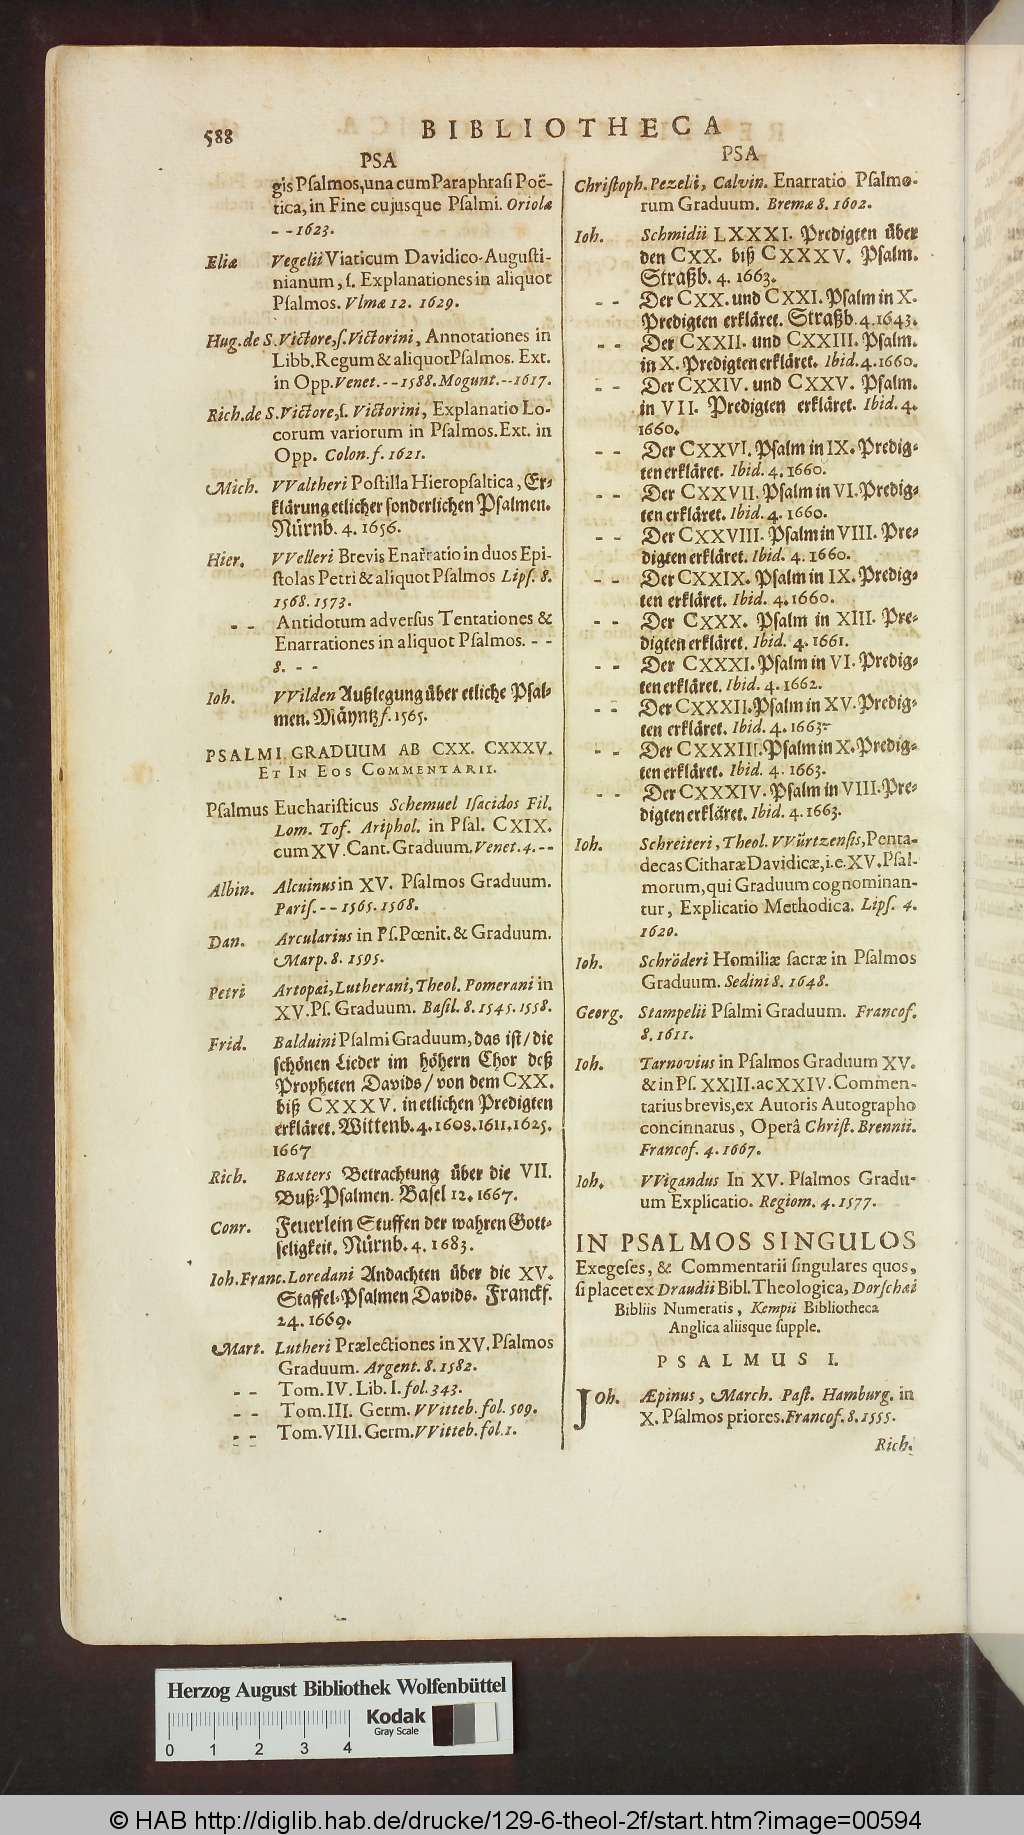 588
BIBLIOTHECA
PSA
gis Psalmos, una cum Paraphrasi Poë-
tica, in Fine cujusque Psalmi. Oriolæ
- - 1623.
Eliæ Vegelii Viaticum Davidico-Augusti-
nianum, s. Explanationes in aliquot
Psalmos. Vlmæ 12. 1629.
Hug. de S. Victore, s. Victorini, Annotationes in
Libb. Regum & aliquot Psalmos. Ext.
in Opp. Venet. - - 1588. Mogunt. - - 1617.
Rich. de S. Victore, s. Victorini, Explanatio Lo-
corum variorum in Psalmos. Ext. in
Opp. Colon. f. 1621.
Mich. VValtheri Postilla Hieropsaltica, Er-
klärung etlicher sonderlichen Psalmen.
Nürnb. 4. 1656.
Hier. VVelleri Brevis Enarratio in duos Epi-
stolas Petri & aliquot Psalmos Lips. 8.
1568. 1573.
- - Antidotum adversus Tentationes &
Enarrationes in aliquot Psalmos. - -
8. - -
Ioh. VVilden Außlegung über etliche Psal-
men. Mäyntz f. 1565.
PSALMI GRADUUM AB CXX. CXXXV.
ET IN EOS COMMENTARII.
Psalmus Eucharisticus Schemuel Isacidos Fil.
Lom. Tof. Ariphol. in Psal. CXIX.
cum XV. Cant. Graduum. Venet. 4. - -
Albin. Alcuinus in XV. Psalmos Graduum.
Paris. - - 1565. 1568.
Dan. Arcularius in Ps. Pœnit. & Graduum.
Marp. 8. 1595.
Petri Artopæi, Lutherani, Theol. Pomerani in
XV. Ps. Graduum. Basil. 8. 1545. 1558.
Frid. Balduini Psalmi Graduum, das ist / die
schönen Lieder im höhern Chor deß
Propheten Davids / von dem CXX.
biß CXXXV. in etlichen Predigten
erkläret. Wittenb. 4. 1608. 1611. 1625.
1667
Rich. Baxters Betrachtung über die VII.
Buß-Psalmen. Basel 12. 1667.
Conr. Feuerlein Stuffen der wahren Gott-
seligkeit. Nürnb. 4. 1683.
Ioh. Franc. Loredani Andachten über die XV.
Staffel-Psalmen Davids. Franckf.
24. 1669.
Mart. Lutheri Prælectiones in XV. Psalmos
Graduum. Argent. 8. 1582.
- - Tom. IV. Lib. I. fol. 343.
- - Tom. III. Germ. VVitteb. fol. 509.
- - Tom. VIII. Germ. VVitteb. fol. 1.
PSA
Christoph. Pezelii, Calvin. Enarratio Psalmo-
rum Graduum. Bremæ 8. 1602.
Ioh. Schmidii LXXXI. Predigten über
den CXX. biß CXXXV. Psalm.
Straßb. 4. 1663.
- - Der CXX. und CXXI. Psalm in X.
Predigten erkläret. Straßb. 4. 1643.
- - Der CXXII. und CXXIII. Psalm.
in X. Predigten erkläret. Ibid. 4. 1660.
- - Der CXXIV. und CXXV. Psalm.
in VII. Predigten erkläret. Ibid. 4.
1660.
- - Der CXXVI. Psalm in IX. Predig-
ten erkläret. Ibid. 4. 1660.
- - Der CXXVII. Psalm in VI. Predig-
ten erkläret. Ibid. 4. 1660.
- - Der CXXVIII. Psalm in VIII. Pre-
digten erkläret. Ibid. 4. 1660.
- - Der CXXIX. Psalm in IX. Predig-
ten erkläret. Ibid. 4. 1660.
- - Der CXXX. Psalm in XIII. Pre-
digten erkläret. Ibid. 4. 1661.
- - Der CXXXI. Psalm in VI. Predig-
ten erkläret. Ibid. 4. 1662.
- - Der CXXXII. Psalm in XV. Predig-
ten erkläret. Ibid. 4. 1663.
- - Der CXXXIII. Psalm in X. Predig-
ten erkläret. Ibid. 4. 1663.
- - Der CXXXIV. Psalm in VIII. Pre-
digten erkläret. Ibid. 4. 1663.
Ioh. Schreiteri, Theol. VVürtzensis, Penta-
decas Citharæ Davidicæ, i. e. XV. Psal-
morum, qui Graduum cognominan-
tur, Explicatio Methodica. Lips. 4.
1620.
Ioh. Schröderi Homiliæ sacræ in Psalmos
Graduum. Sedini 8. 1648.
Georg. Stampelii Psalmi Graduum. Francof.
8. 1611.
Ioh. Tarnovius in Psalmos Graduum XV.
& in Ps. XXIII. ac XXIV. Commen-
tarius brevis, ex Autoris Autographo
concinnatus, Operâ Christ. Brennii.
Francof. 4. 1667.
Ioh. VVigandus In XV. Psalmos Gradu-
um Explicatio. Regiom. 4. 1577.
IN PSALMOS SINGULOS
Exegeses, & Commentarii singulares quos,
si placet ex Draudii Bibl. Theologica, Dorschæi
Bibliis Numeratis, Kempii Bibliotheca
Anglica aliisque supple.
PSALMUS I.
Joh. Æpinus, March. Past. Hamburg. in
X. Psalmos priores. Francof. 8. 1555.
Rich.
Herzog August Bibliothek Wolfenbüttel
Kodak
Gray Scale
0 1 2 3 4
© HAB http://diglib.hab.de/drucke/129-6-theol-2f/start.htm?image=00594